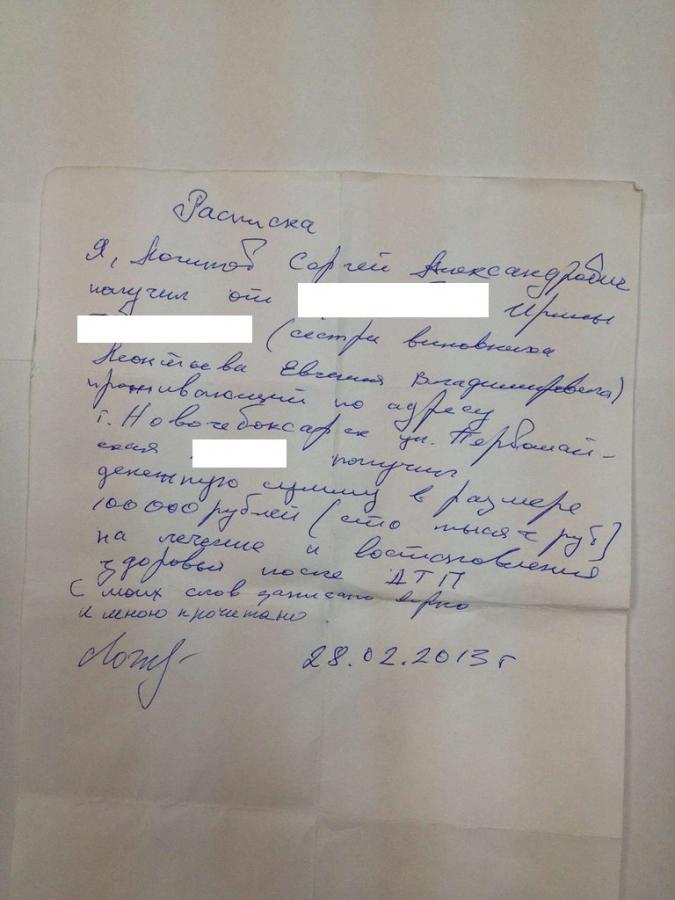 Расписка
Я, Логинов Сергей Александрович
получил от Ирины
(сестры виновника
Леонтьева Евгения Владимировича)
проживающий по адресу
г. Новочебоксарск ул. Первомай-
ская получил
денежную сумму в размере
100 000 рублей (сто тысяч руб)
на лечение и востоновления
здоровья после ДТП
С моих слов записано верно
и мною прочитано.
28.02.2013 г